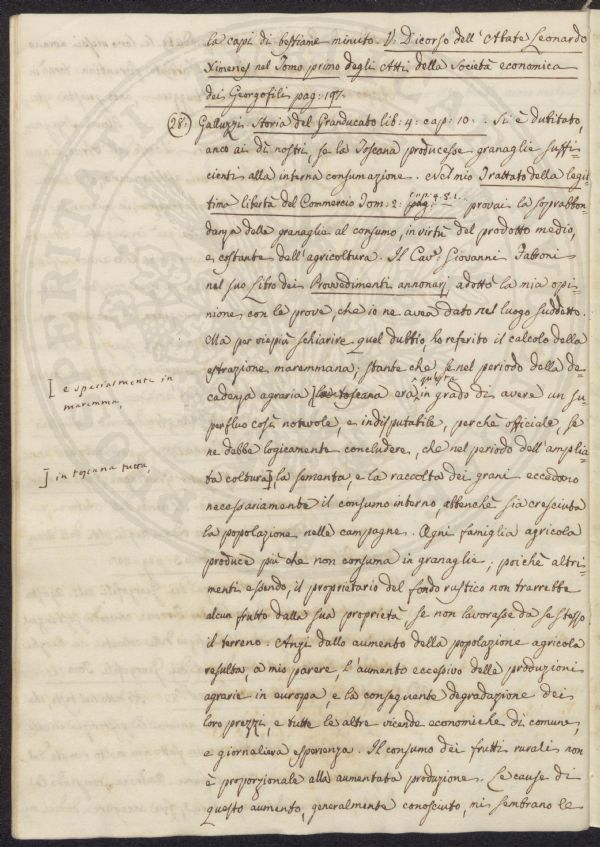 la capi di bestiame minuto. V: Dicorso dell'Abate Leonardo
Ximenes nel Tomo primo degli Atti della Società economica
dei Georgofili pag: 197.
(28.) Galluzzi Storia del Granducato lib: 4: cap: 10. . Si è dubitato,
anco ai dì nostri, se la Toscana producesse granaglie suffi-
cienti alla interna consumazione. Nel mio Trattato della legit-
tima libertà del Commercio Tom: 2: pag: provai la soprabbon-
danza delle granaglie al consumo, in virtù del prodotto medio,
e costante dell'agricoltura. Il Cav: Giovanni Fabroni
nel suo Libro dei Provvedimenti annonarj adottò la mia opi-
nione, con le prove, che io ne avea dato nel luogo suddetto.
Ma per viepiù schiarire quel dubbio, ho referito il calcolo della
estrazione maremmana; stante che se nel periodo della de-
[ e specialmente in
maremma,
cadenza agraria [la toscana era questa in grado di avere un su-
perfluo così notevole, e indisputabile, perchè officiale, se
ne debbe logicamente concludere, che nel periodo dell'amplia-
] in toscana tutta,
ta coltura], la sementa, e la raccolta dei grani eccedono
necessariamente il consumo interno, abbenchè sia cresciuta
la popolazione nelle campagne. Ogni famiglia agricola
produce più che non consuma in granaglie; poichè altri-
menti essendo, il proprietario del fondo rustico non trarrebbe
alcun frutto dalla sua proprietà se non lavorasse da se stesso
il terreno. Anzi dallo aumento della popolazione agricola
resulta, a mio parere, l'aumento eccessivo delle produzioni
agrarie in europa, e la conseguente degradazione dei
loro prezzi, e tutte le altre vicende economiche di comune,
e giornaliera esperienza. Il consumo dei frutti rurali non
è proporzionale alla aumentata produzione. Le cause di
questo aumento, generalmente conosciuto, mi sembrano le